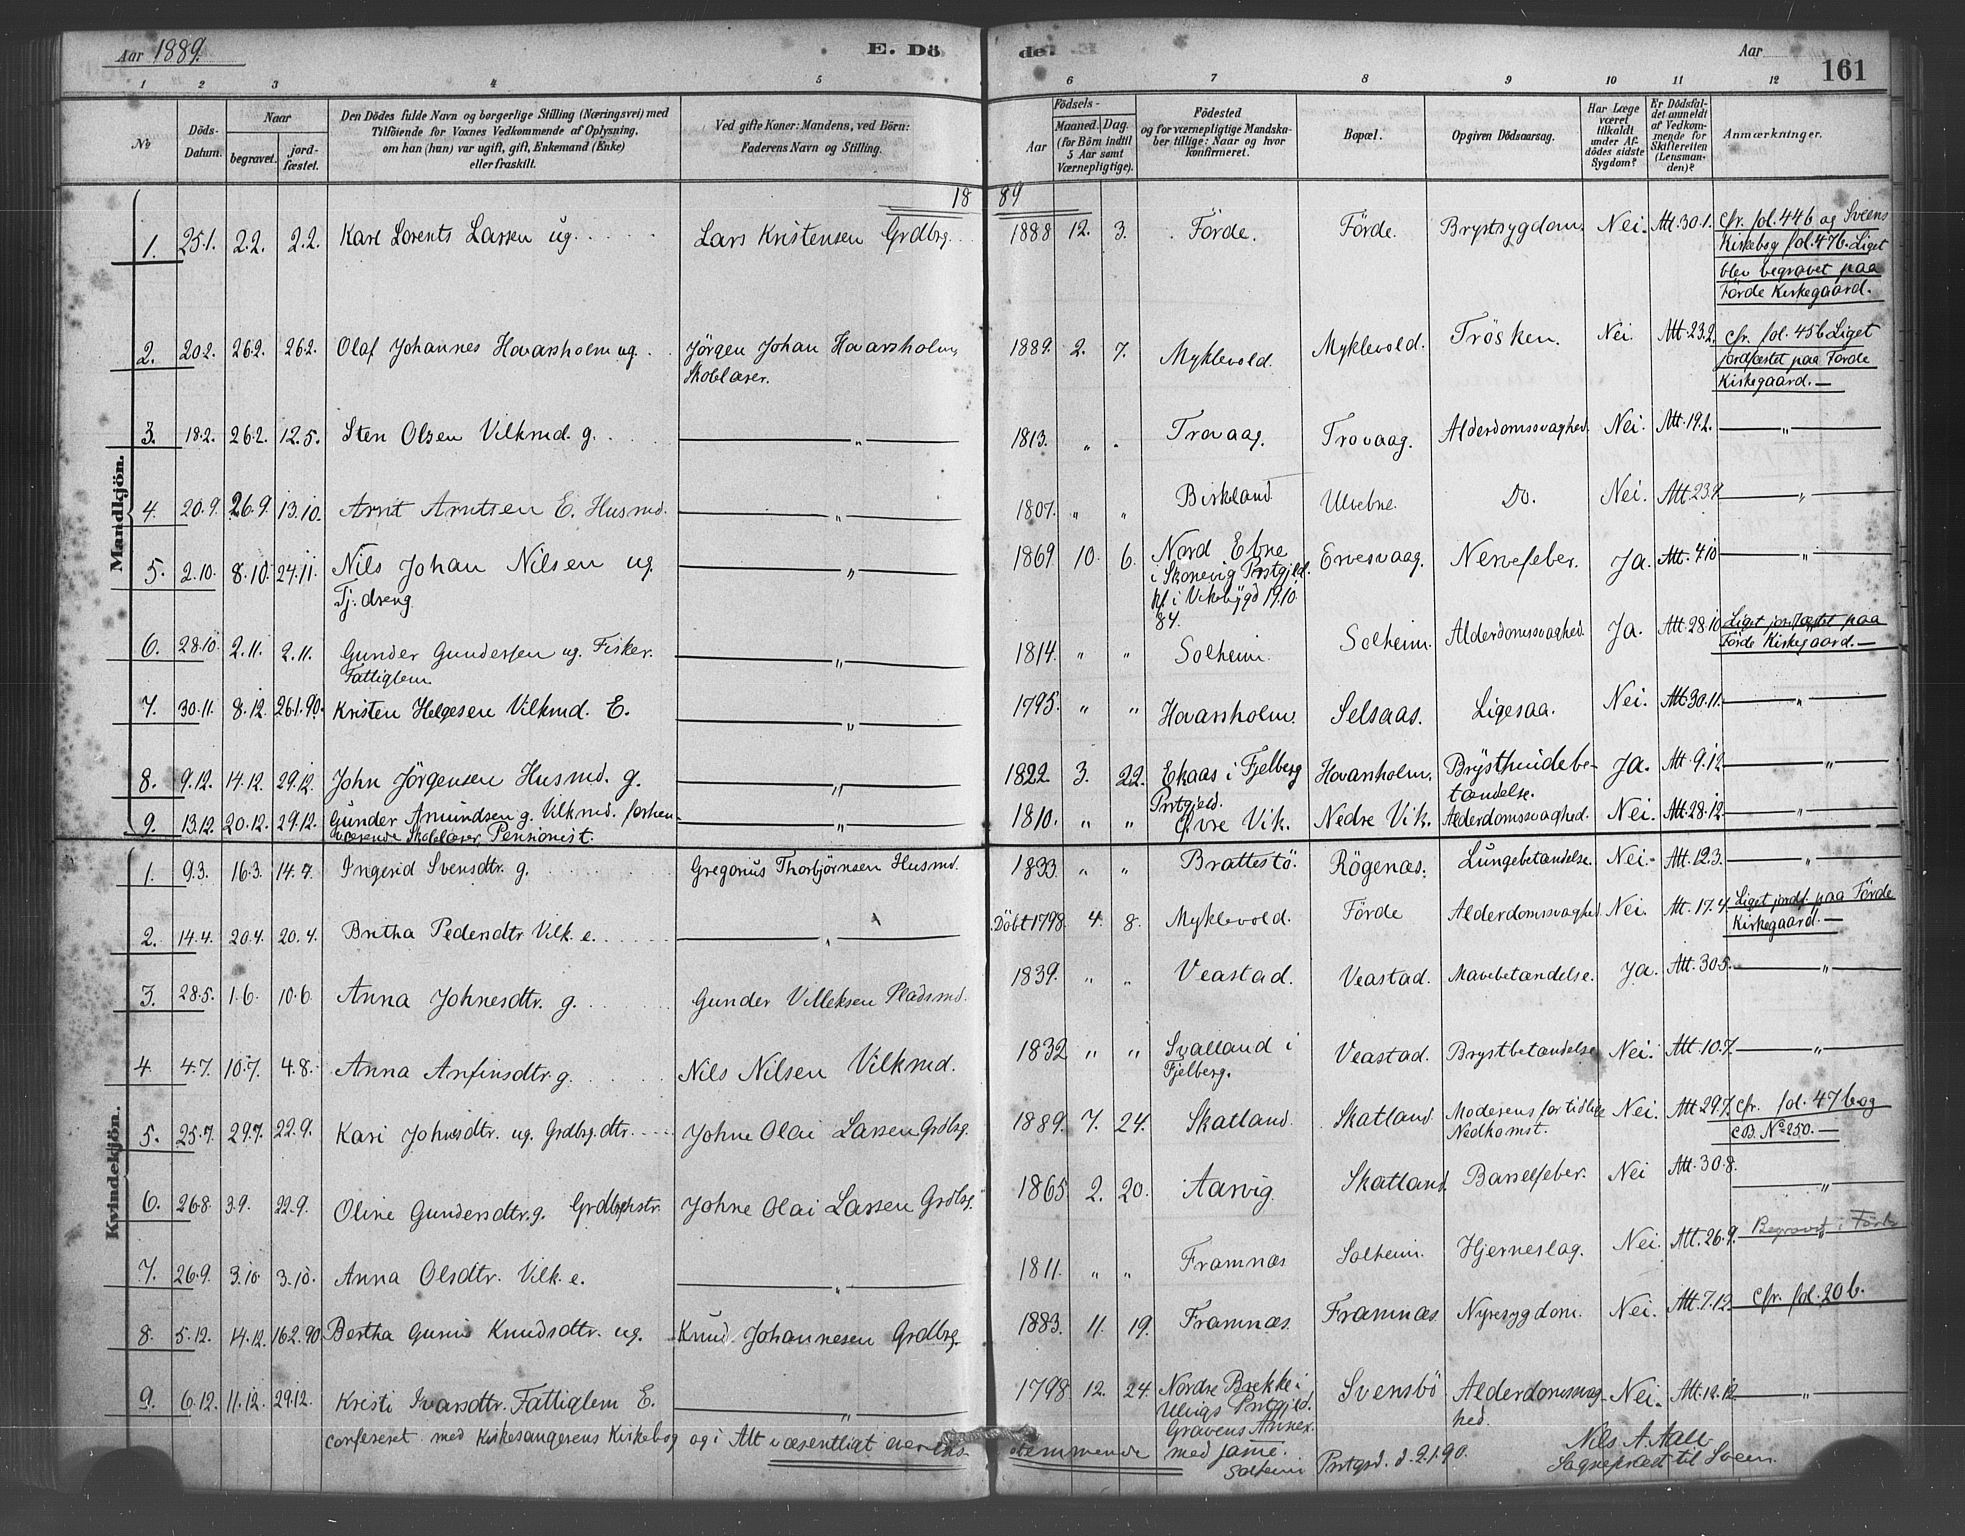 Aar 1889.
E. Döde.
Aar
161
1 2 3 4 5 6 7 8 9 10 11 12
No
Döds-Datum.
Naar
begravet.
jordfæstet.
Den Dödes fulde Navn og borgerlige Stilling (Næringsvei) med
Tilföiende for Voxnes Vedkommende af Oplysning,
om han (hun) var ugift, gift, Enkemand (Enke)
eller fraskilt.
Ved gifte Koner: Mandens, ved Börn:
Faderens Navn og Stilling.
Födsels-
Aar
Maaned. Dag.
(for Börn indtil
5 Aar samt
Værnepligtige).
Födested
og for værnepligtige Mandska-
ber tillige: Naar og hvor
konfirmeret.
Bopæl.
Opgiven Dödsaarsag.
Har Læge
været
tilkaldt
under Af-
dödes sidste
Sygdom?
Er Dödsfal-
det anmeldt
af Vedkom-
mende for
Skifteretten
(Lensman-
den)?
Anmærkninger.
1889
Mandkjön.
1. 25.1. 2.2. 2.2. Karl Lorents Larsen ug. Lars Kristensen Grdbrg. 1888 12. 3. Förde. Förde. Brystsygdom. Nei. Att. 30.1. cfr. fol. 44b og Sveens
Kirkebog fol. 47b. Liget
blev begravet paa
Förde Kirkegaard.
2. 20.2. 26.2. 26.2. Olaf Johannes Hovarsholm ug. Jörgen Johan Hovarsholm, 1889. 2. 7. Myklevold. Myklevold. Trösken. Nei. Att. 23.2. cfr. fol. 45b Liget
Skolelærer. jordfæstet paa Förde
Kirkegaard.
3. 18.2. 26.2. 12.5. Sten Olsen Vilkmd. g. " 1813. " " Trovaag. Trovaag. Alderdomssvaghed. Nei. Att. 19.2. "
4. 20.9. 26.9. 13.10. Arnt Arntsen E. Husmd. " 1807. " " Birkeland Ulvebne. Do. Nei. Att. 23.9 "
5. 2.10. 8.10. 24.11. Nils Johan Nilsen ug. " 1869 10. 6. Nord Ebne Ervesvaag. Nervefeber. Ja. Att. 4.10 "
Tj. dreng i Skonevig Prstgjeld.
kf. i Vikebygd 19.10.
84.
6. 28.10. 2.11. 2.11. Gunder Gundersen ug. Fisker. " 1814. " " Solheim. Solheim. Alderdomssvaghed. Ja. Att. 28.10 Liget jordfæstet paa
Fattiglem. Förde Kirkegaard.
7. 30.11. 8.12. 26.1.90. Kristen Helgesen Vilkmd. E. " 1795. " " Hovarsholm. Selsaas. Ligesaa. Nei. Att. 30.11. "
8. 9.12. 14.12. 29.12. John Jörgensen Husmd. g. " 1822. 3. 22. Ekaas i Fjelberg Hovarsholm. Brysthindebe- Ja. Att. 9.12 "
Prstgjeld. tændelse.
9. 13.12. 20.12. 29.12. Gunder Amundsen g. Vilkmd. forhen- " 1810. " " Övre Vik. Nedre Vik. Alderdomssvaghed. Nei. Att. 28.12. "
værende Skolelærer, Pensionist.
Kvindekjön.
1. 9.3. 16.3. 14.7. Ingerid Svensdtr. g. Gregorius Thorbjørnsen Husmd. 1833. " " Brattestö. Rögenæs. Lungebetændelse. Nei. Att. 12.3. "
2. 14.4. 20.4. 20.4. Britha Pedersdtr Vilk. e. " Döbt 1798. 4. 8. Myklevold. Förde Alderdomssvaghed Nei. Att. 17.4. Liget jordf. paa Förde
Kirkegaard.
3. 28.5. 1.6. 10.6. Anna Johnesdtr. g. Gunder Villeksen Pladsmd. 1839. " " Veastad. Veastad. Mavebetændelse. Ja. Att. 30.5. "
4. 4.7. 10.7. 4.8. Anna Arfinsdtr. g. Nils Nilsen Vilkmd. 1832 " " Svalland i Veastad. Brystbetændelse Nei. Att. 10.7. "
Fjelberg.
5. 25.7. 29.7. 22.9. Kari Johnesdtr. ug. Grdbrg. dtr. Johne Olai Larsen Grdbrg. 1889. 7. 24. Skatland. Skatland. Moderens for tidlige Nei. Att. 29.7. cfr. fol. 47b og
Nedkomst. cB. No 250.
6. 26.8. 3.9. 22.9. Oline Gundersdtr. g. Johne Olai Larsen Grdbrg. 1865. 2. 20. Aarvig. Skatland. Barselfeber. Nei Att. 30.8. "
7. 26.9. 3.10. 3.10. Anna Olsdtr. Vilk. e. " 1811. " " Framnæs Solheim. Hjerneslag. Nei. Att. 26.9. Begravet i Förde
8. 5.12. 14.12. 16.2.90. Bertha Gurine Knudsdtr. ug. Knud Johannesen Grdbrg. 1883. 11. 19. Framnæs. Framnæs. Nyresygdom. Nei. Att. 7.12. cfr. fol. 20b.
9. 6.12. 11.12. 29.12. Kristi Ivarsdtr. Fattiglem E. " 1798. 12. 24. Nordre Brekke i Svensbö Alderdomssvag- Nei. Att. 12.12 "
Prstgjeld. hed.
Gravens Annex.
confereret med Kirkesangerens Kirkebog og i Alt væsentligt overens stemmende med samme.
Solheim Prstgrd. d. 2.1.90.
Nils A. Aall
Sogneprest til Sveen.